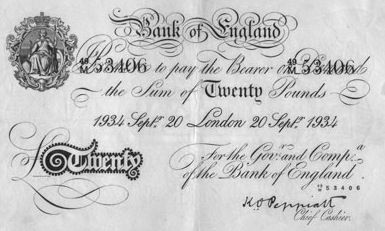 Bank of England
49/M 53406 Promise to pay the Bearer on Demand 49/M 53406
the Sum of Twenty Pounds
1934 Septr 20 London 20 Septr 1934
For the Govr and Compa
£ Twenty of the Bank of England
49/M 53406
K.O. Peppiatt
Chief Cashier.